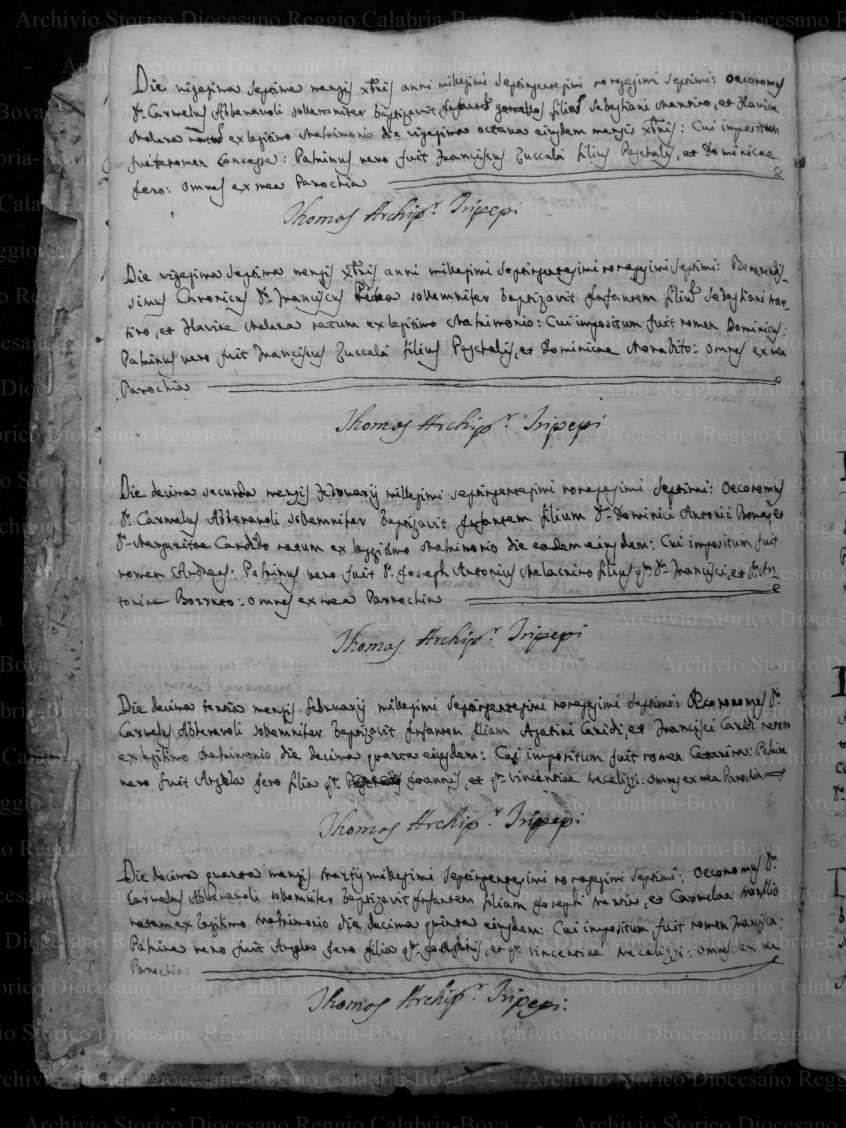 Die vigesima septima mensis xbris anni millesimi septingentesimi nonagesimi septimi: oeconomus
Dr. Carmelus Abbenavoli sollemniter baptizavit Infantem filiam Sebastiani Mantiro, et Flavia
Malara natam ex legitimo Matrimonio die vigesima octava eiusdem mensis xbris: Cui impositum
fuit nomen Concessa: Patrinus vero fuit Franciscus Zuccalà filius Paschalis, et Dominicae
fero: omnes ex mea Parochia
Thomas Archipr. Tripepi
Die vigesima septima mensis xbris anni millesimi septingentesimi nonagesimi septimi: Reverendis-
simus Canonicus Dr. Franciscus sollemniter baptizavit Infantem filium Sebastiani Man-
tiro, et Flaviae Malara natum ex legitimo Matrimonio: Cui impositum fuit nomen Dominicus:
Patrinus vero fuit Franciscus Zuccalà filius Paschalis, et Dominicae Morabito: omnes ex mea
Parochia
Thomas Archipr. Tripepi
Die decima secunda mensis Februarij millesimi septingentesimi nonagesimi septimi: Oeconomus
Dr. Carmelus Abbenavoli sollemniter baptizavit Infantem filium Dr. Dominici Antonii et
Dr. Margaritae Candito natum ex legitimo Matrimonio die eadem eiusdem: Cui impositum fuit
nomen Andreas: Patrinus vero fuit Dr. Joseph Antonius Malacrino filius qm. Dr. Francisci, et Dr. An-
toniae Borruto: omnes ex mea Parrochia
Thomas Archipr. Tripepi
Die decima tertia mensis februarij millesimi septingentesimi nonagesimi septimi: Oeconomus Dr.
Carmelus Abbenavoli sollemniter baptizavit Infantem filiam Agatini Caridi, et Francisci Caridi natam
ex legitimo Matrimonio die decima quarta eiusdem: Cui impositum fuit nomen Catarina: Patrina
vero fuit Angela fero filia qm. Joannis, et qm. Vincentiae Mecalizzi: omnes ex mea Parochia
Thomas Archipr. Tripepi
Die decima quarta mensis Martij millesimi septingentesimi nonagesimi septimi: oeconomus Dr.
Carmelus Abbenavoli sollemniter baptizavit Infantem filiam Joseph et Carmelae
natam ex legitimo Matrimonio die decima quinta eiusdem: Cui impositum fuit nomen Francisca:
Patrina vero fuit Angela fero filia qm. et qm. Vincentiae Mecalizzi: omnes ex mea
Parochia
Thomas Archipr. Tripepi:
Archivio Storico Diocesano Reggio Calabria-Bova